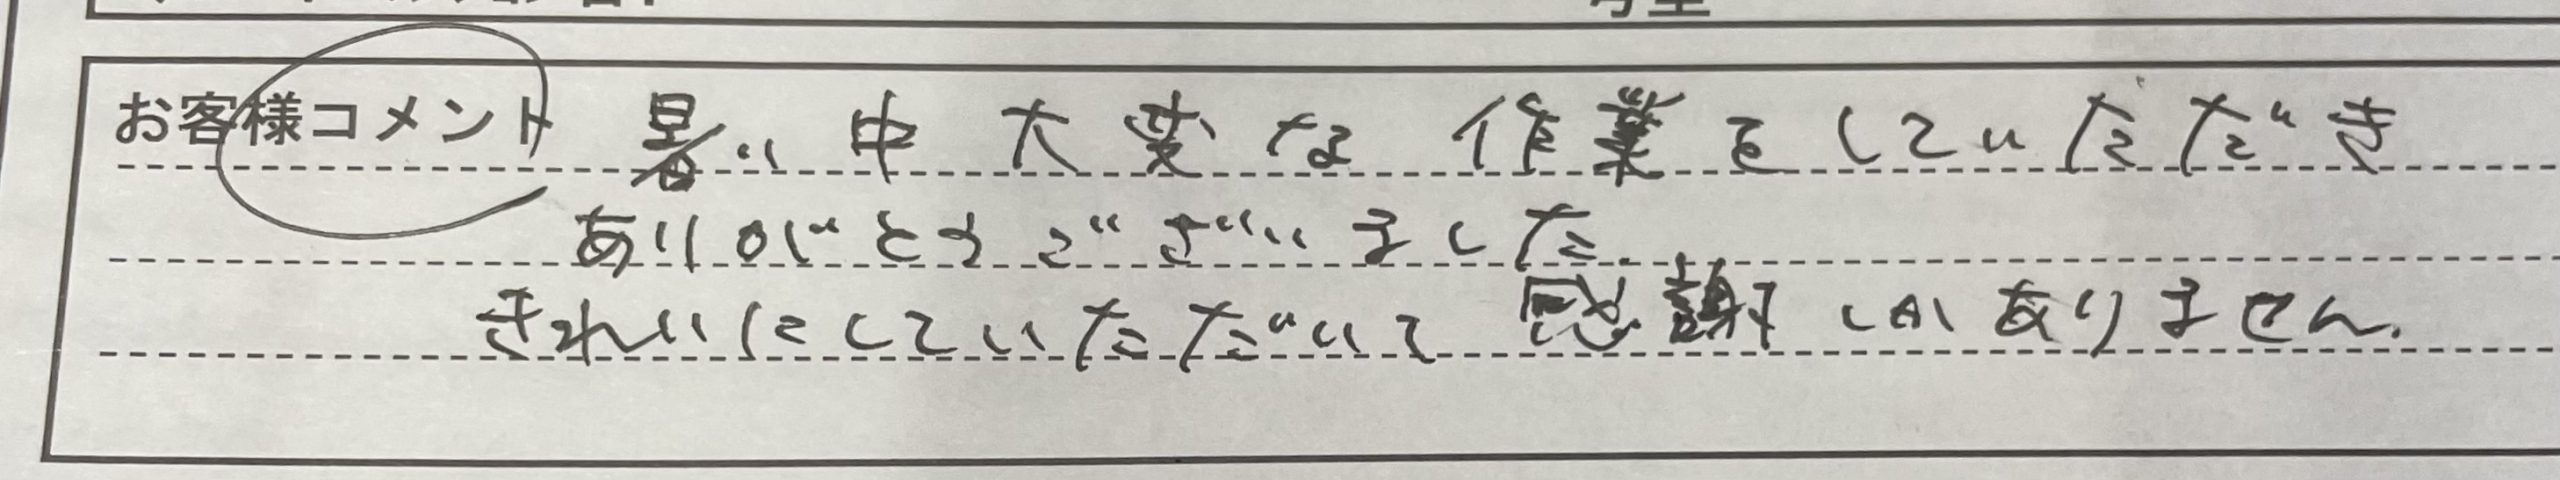 お客様コメント 暑い中大変な作業をしていただき
ありがとうございました.
きれいにしていただいて感謝しかありません.